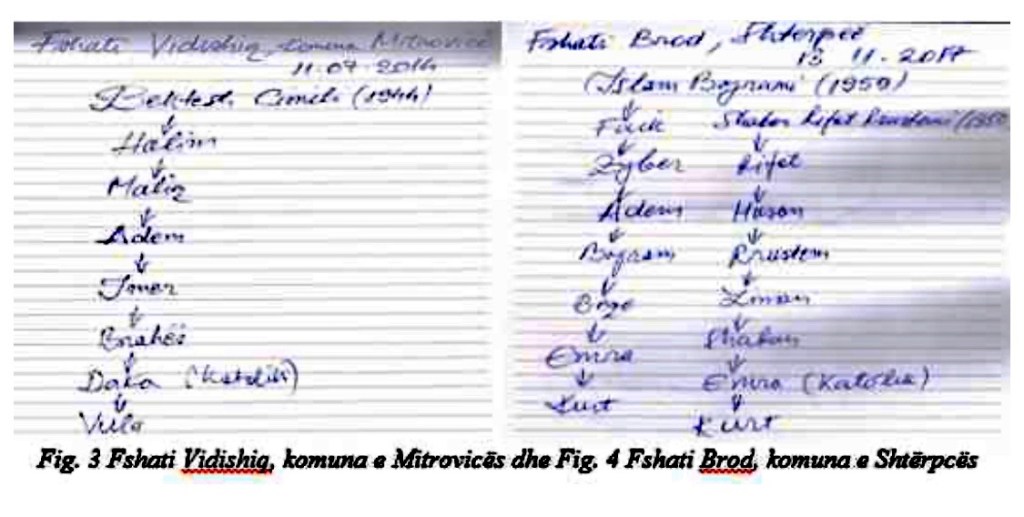 Fshati Vidishiq, komuna Mitrovicë
11.07.2016
Bektesh Cimili (1944)
Halim
Maliq
Adem
Imer
Brahë
Daka (Katolik)
Vula
Fshati Brod, Shterpcë
13 11. 2017
Islam Bajrami (1950)
Faik Shaban Rifat Rrustemi
Zyber Rifat
Adem Hasan
Bajram Rrustem
Liman
Emra Shaban
Kurt Emra (Katolik)
Kurt
Fig. 3 Fshati Vidishiq, komuna e Mitrovicës dhe Fig. 4 Fshati Brod, komuna e Shtërpcës